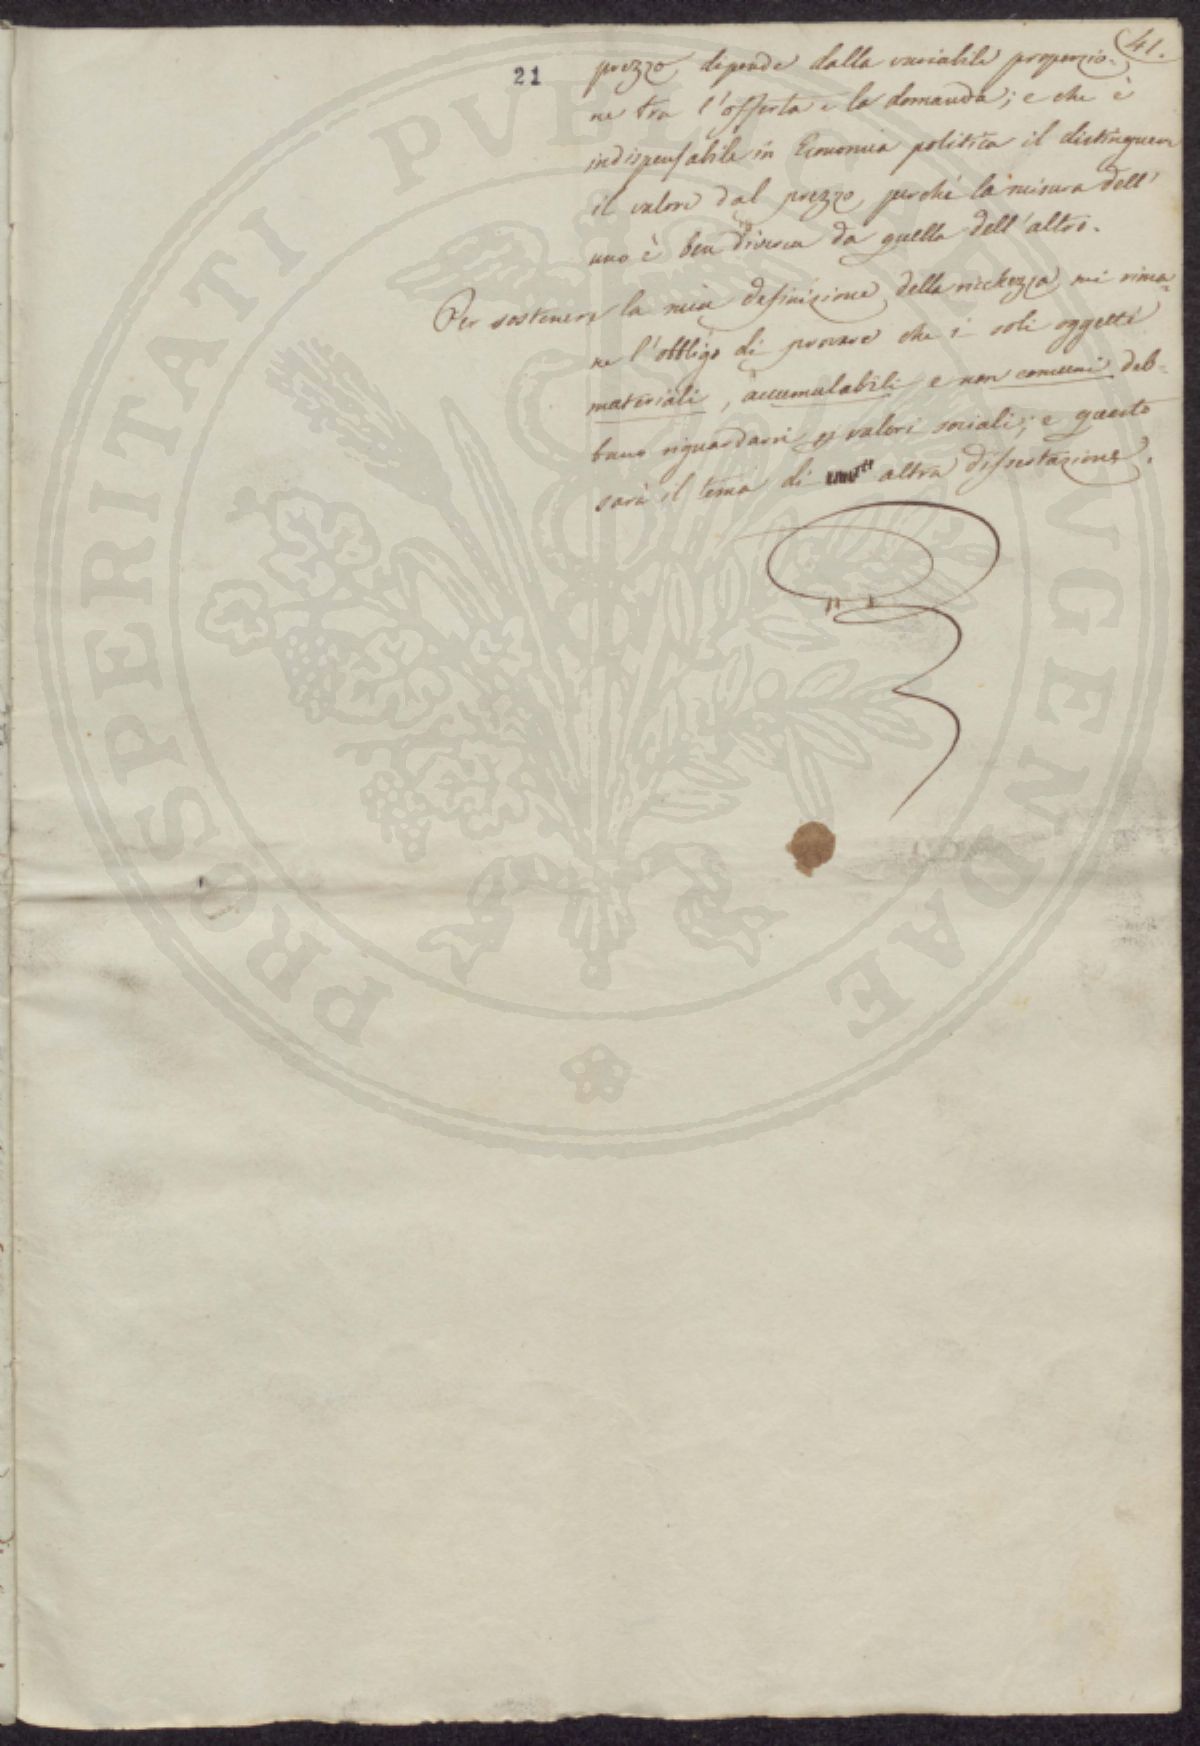 41.
21
prezzo dipende dalla variabile proporzio-
ne tra l'offerta e la domanda; e che è
indispensabile in Economia politica il distinguere
il valore dal prezzo, perchè la misura dell'
uno è ben diversa da quella dell'altro.
Per sostenere la mia definizione della ricchezza, mi rima-
ne l'obbligo di provare che i soli oggetti
materiali, accumulabili e non comuni deb-
bano riguardarsi valori sociali; e questo
sarà il tema di altra dissertazione.
PROSPERITATI PVBLICAE AVGENDAE